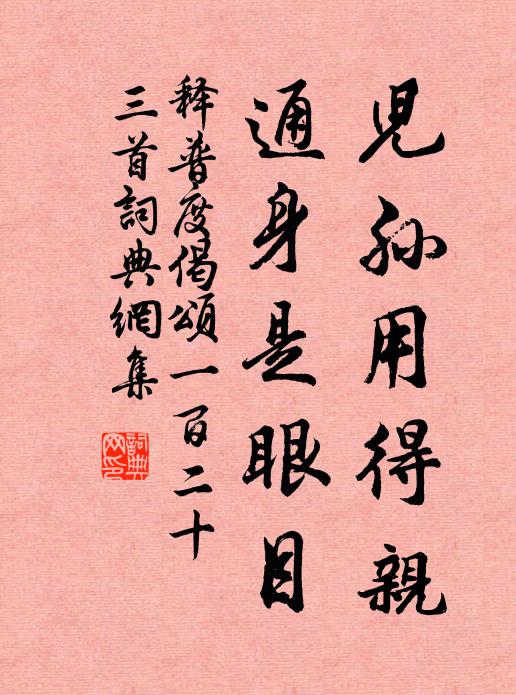 兒孫用得親
通身是眼目
释普度偈頌一百二十
三首詞典網集
詞典网印